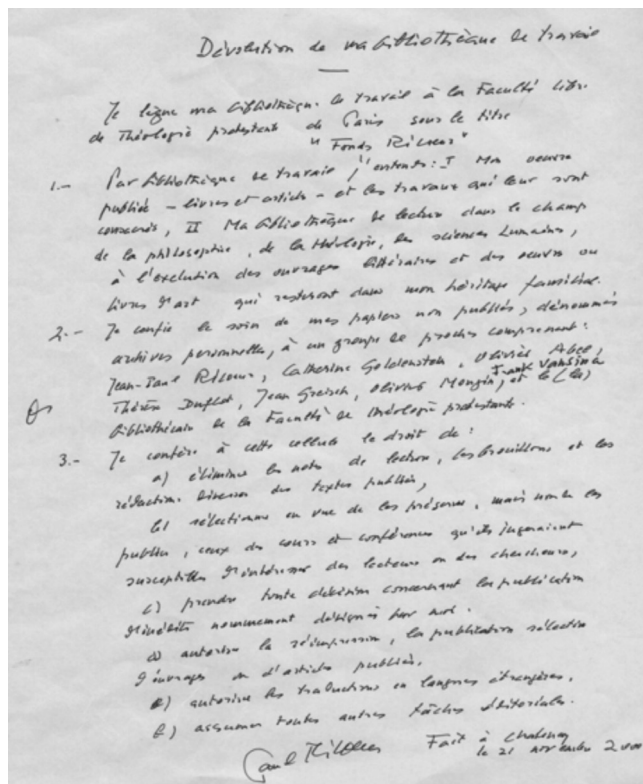 Dévolution de ma bibliothèque de travail
Je lègue ma bibliothèque de travail à la Faculté libre
de Théologie protestante de Paris sous le titre
"Fonds Ricœur"
1.- Par bibliothèque de travail j'entends : I Mon oeuvre
publiée - livres et articles - et les travaux qui leur sont
consacrés, II Ma bibliothèque de lecture dans le champ
de la philosophie, de la théologie, des sciences humaines,
à l'exclusion des ouvrages littéraires et des oeuvres ou
livres d'art qui resteront dans mon héritage familial.
2.- Je confie le soin de mes papiers non publiés, dénommés
archives personnelles, à un groupe de proches comprenant :
Jean-Paul Ricœur, Catherine Goldenstein, Olivier Abel,
Thérèse Duflot, Jean Greisch, Olivier Mongin, Frank Vansina et le (la)
bibliothécaire de la Faculté de théologie protestante.
3.- Je confère à cette cellule le droit de :
a) éliminer les notes de lecture, les brouillons et les
rédactions diverses des textes publiés,
b) sélectionner en vue de les préserver, mais non de les
publier, ceux des cours et conférences qu'ils jugeraient
susceptibles d'intéresser des lecteurs ou des chercheurs,
c) prendre toute décision concernant la publication
d'inédits nommément désignés par moi.
d) autoriser la réimpression, la publication sélective
d'ouvrages ou d'articles publiés,
e) autoriser les traductions en langues étrangères,
f) assumer toutes autres tâches éditoriales.
Paul Ricœur Fait à Chatenay
le 21 novembre